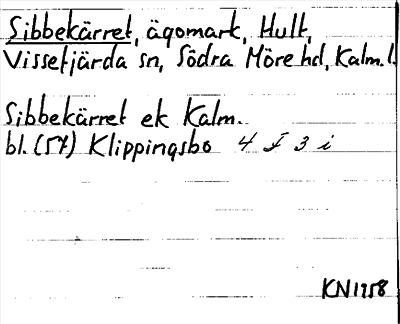 Sibbekärret, ägomark, Hult,
Vissefjärda sn, Södra Möre hd, Kalm.l.
Sibbekärret ek Kalm.
bl. (57) Klippingsbo 4 F 3 i
KN1958